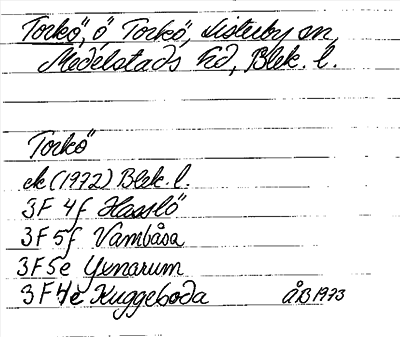 Torkö, ö Torkö, Listerby sn,
Medelstads hd, Blek. l.
Torkö
ek (1972) Blek. l.
3F 4f Hasslö
3F 5f Vambåsa
3F 5e Gynarum
3F 4e Kuggeboda ÅB 1973